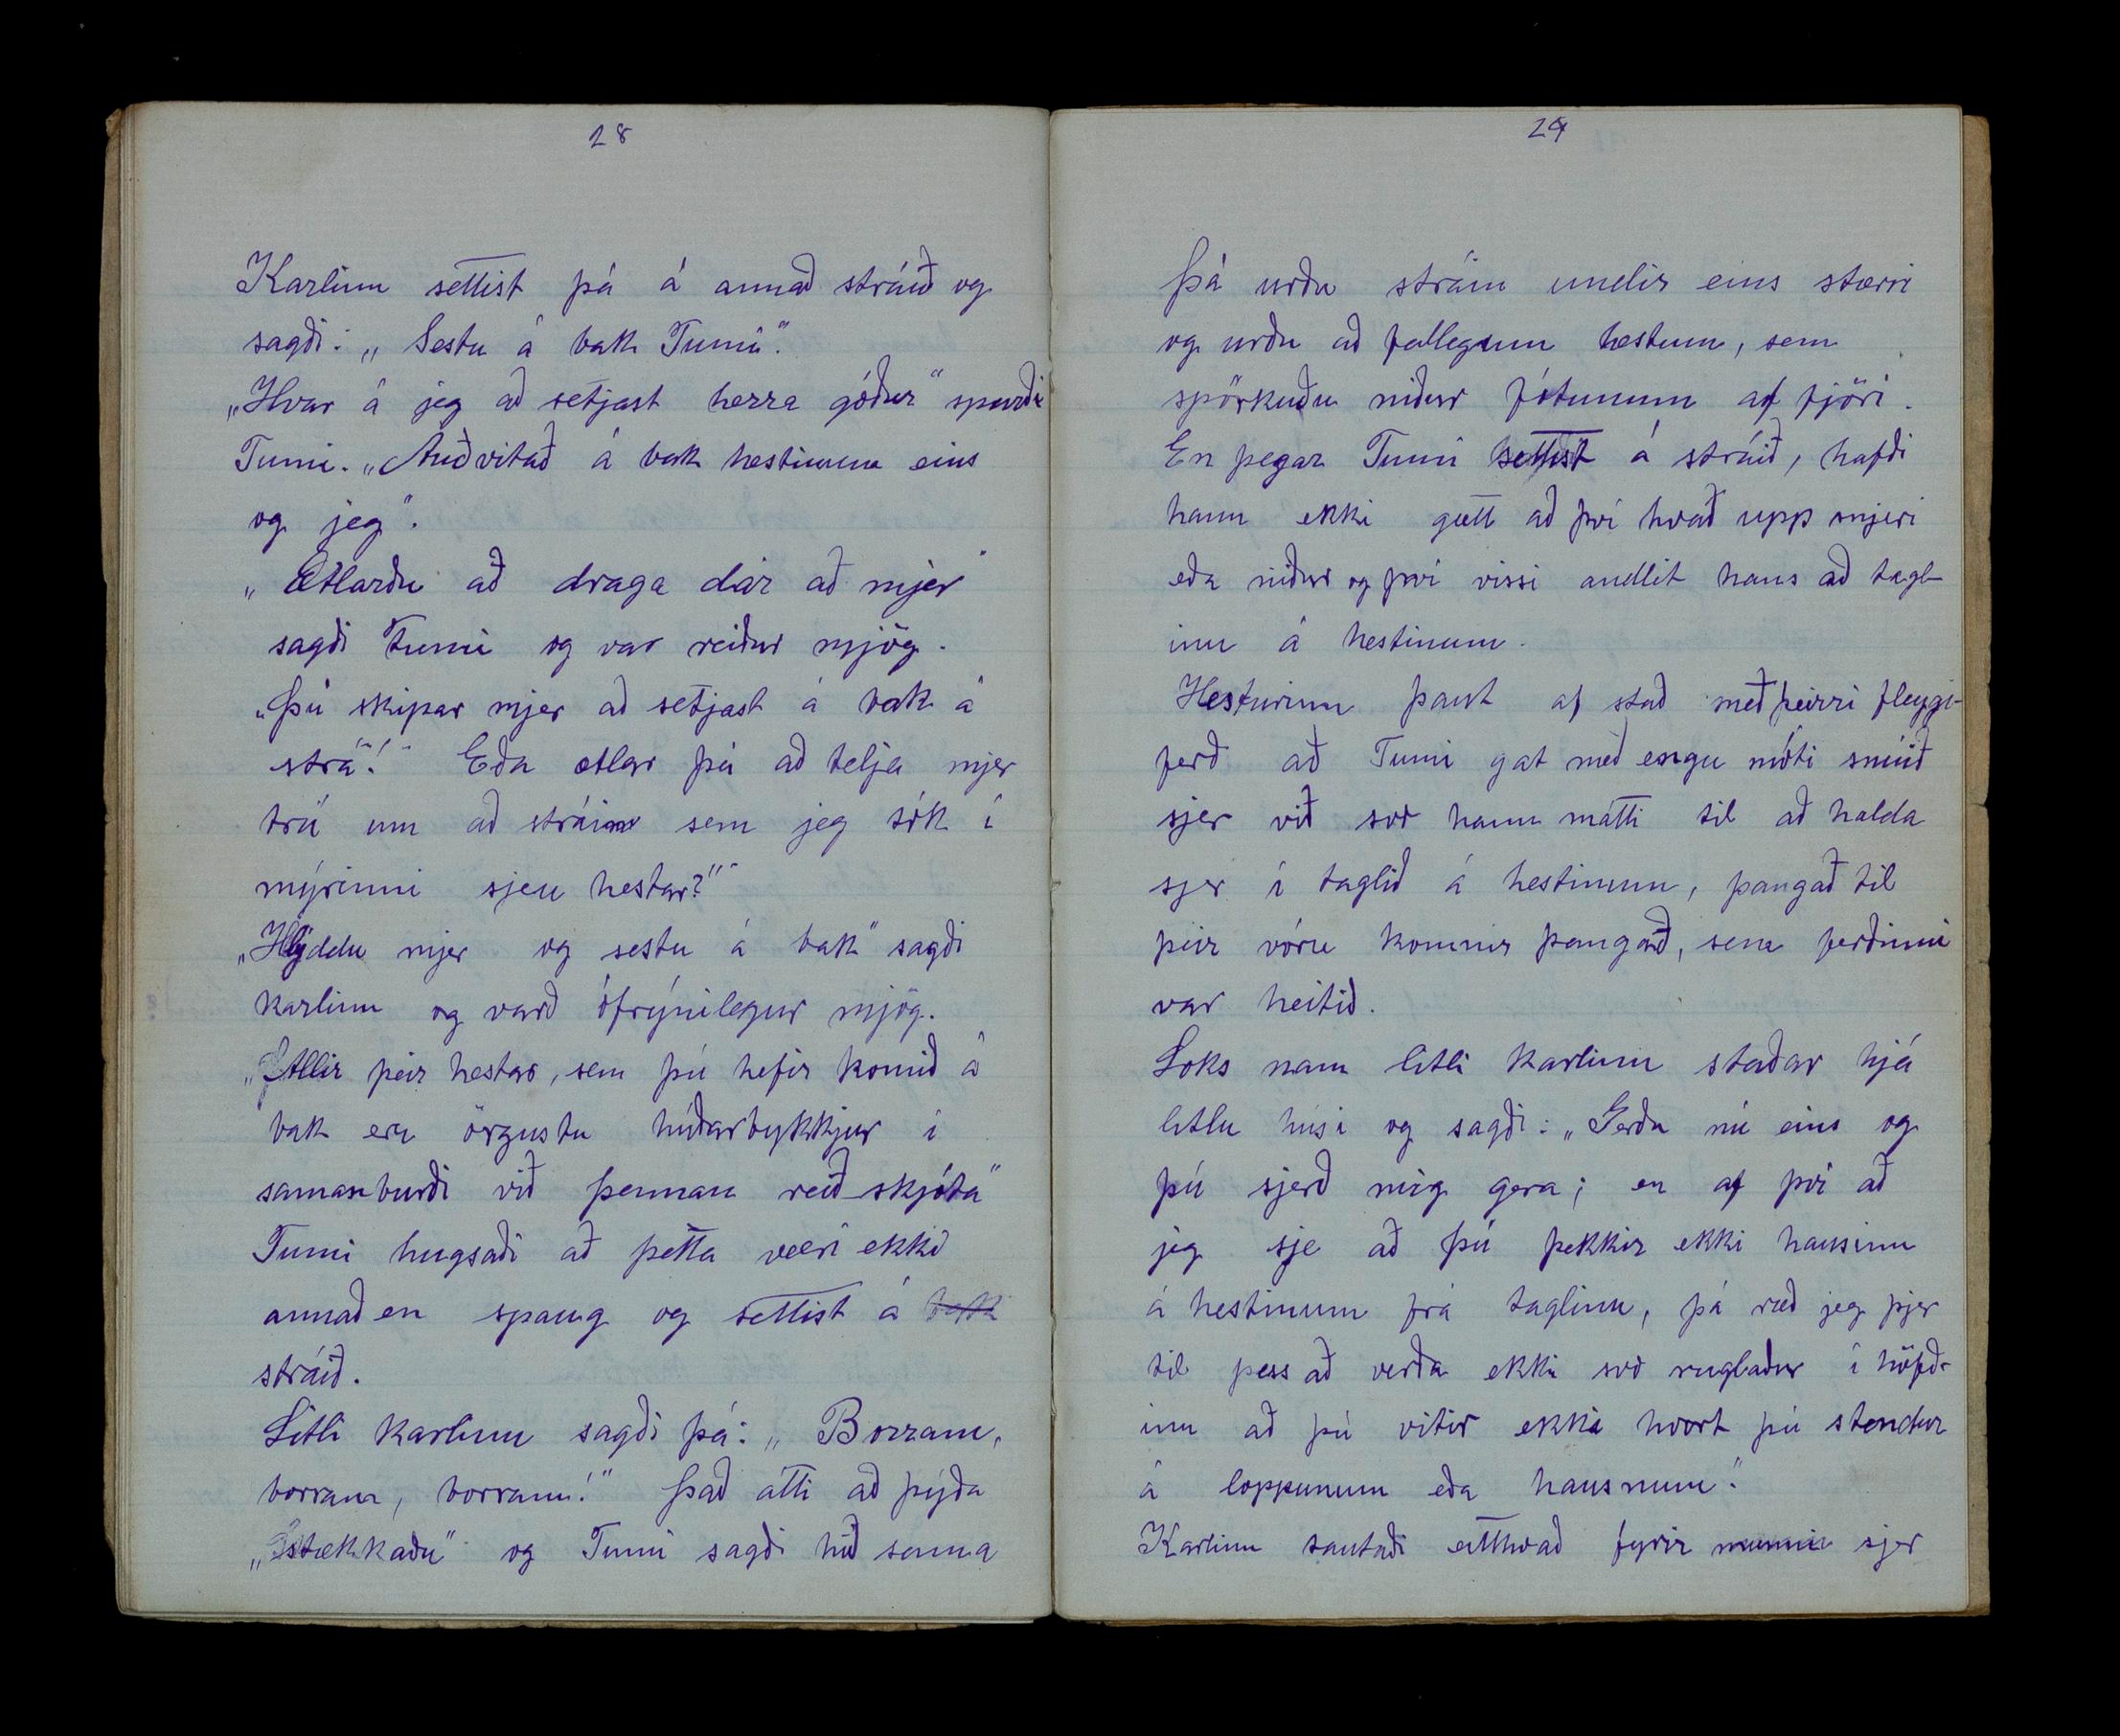 28
Karlinn settist þá á annað stráið og
sagði: „Sestu á bak Tumi“.
„Hvar á jeg að setjast herra góður“ spurði
Tumi. „Auðvitað á bak hestinum eins
og jeg“.
„Ætlarðu að draga dár að mjer“
sagði Tumi og var reiður mjög.
„Þú skipar mjer að setjast á bak á
strá“! Eða ætlar þú að telja mjer
trú um að stráin sem jeg tók í
mýrinni sjeu hestar?“
„Hlýddu mjer og sestu á bak“ sagði
karlinn og varð ófrýnilegur mjög.
„Allir þeir hestar, sem þú hefir komið á
bak eru örgustu húðarbykkjur í
samanburði við þennan reið-skjóta“
Tumi hugsaði að þetta væri ekki
annað en spaug og settist á bak
stráið.
Litli karlinn sagði þá: „Borram,
borram, borram!“ Það átti að þýða
„stækkaðu“ og Tumi sagði hið sama
29
Þá urðu stráin undir eins stærri
og urðu að fallegum hestum, sem
spörkuðu niður fótunum af fjöri.
En þegar Tumi settist á stráið, hafði
hann ekki gætt að því hvað upp snjeri
eða niður og því vissi andlit hans að tagl-
inu á hestinum.
Hesturinn þaut af stað með þeirri fleygi-
ferð að Tumi gat með engu móti snúið
sjer við svo hann mátti til að halda
sjer í taglið á hestinum, þangað til
þeir vóru komnir þangað, sem ferðinni
var heitið.
Loks nam litli karlinn staðar hjá
litlu húsi og sagði: „Gerðu nú eins og
þú sjerð mig gera; en af því að
jeg sje að þú þekkir ekki hausinn
á hestinum frá taglinu, þá ræð jeg þjer
til þess að verða ekki svo ruglaður í höfð-
inu að þú vitir ekki hvort þú stendur
á loppunum eða hausnum“.
Karlinn tautaði eitthvað fyrir munni sjer